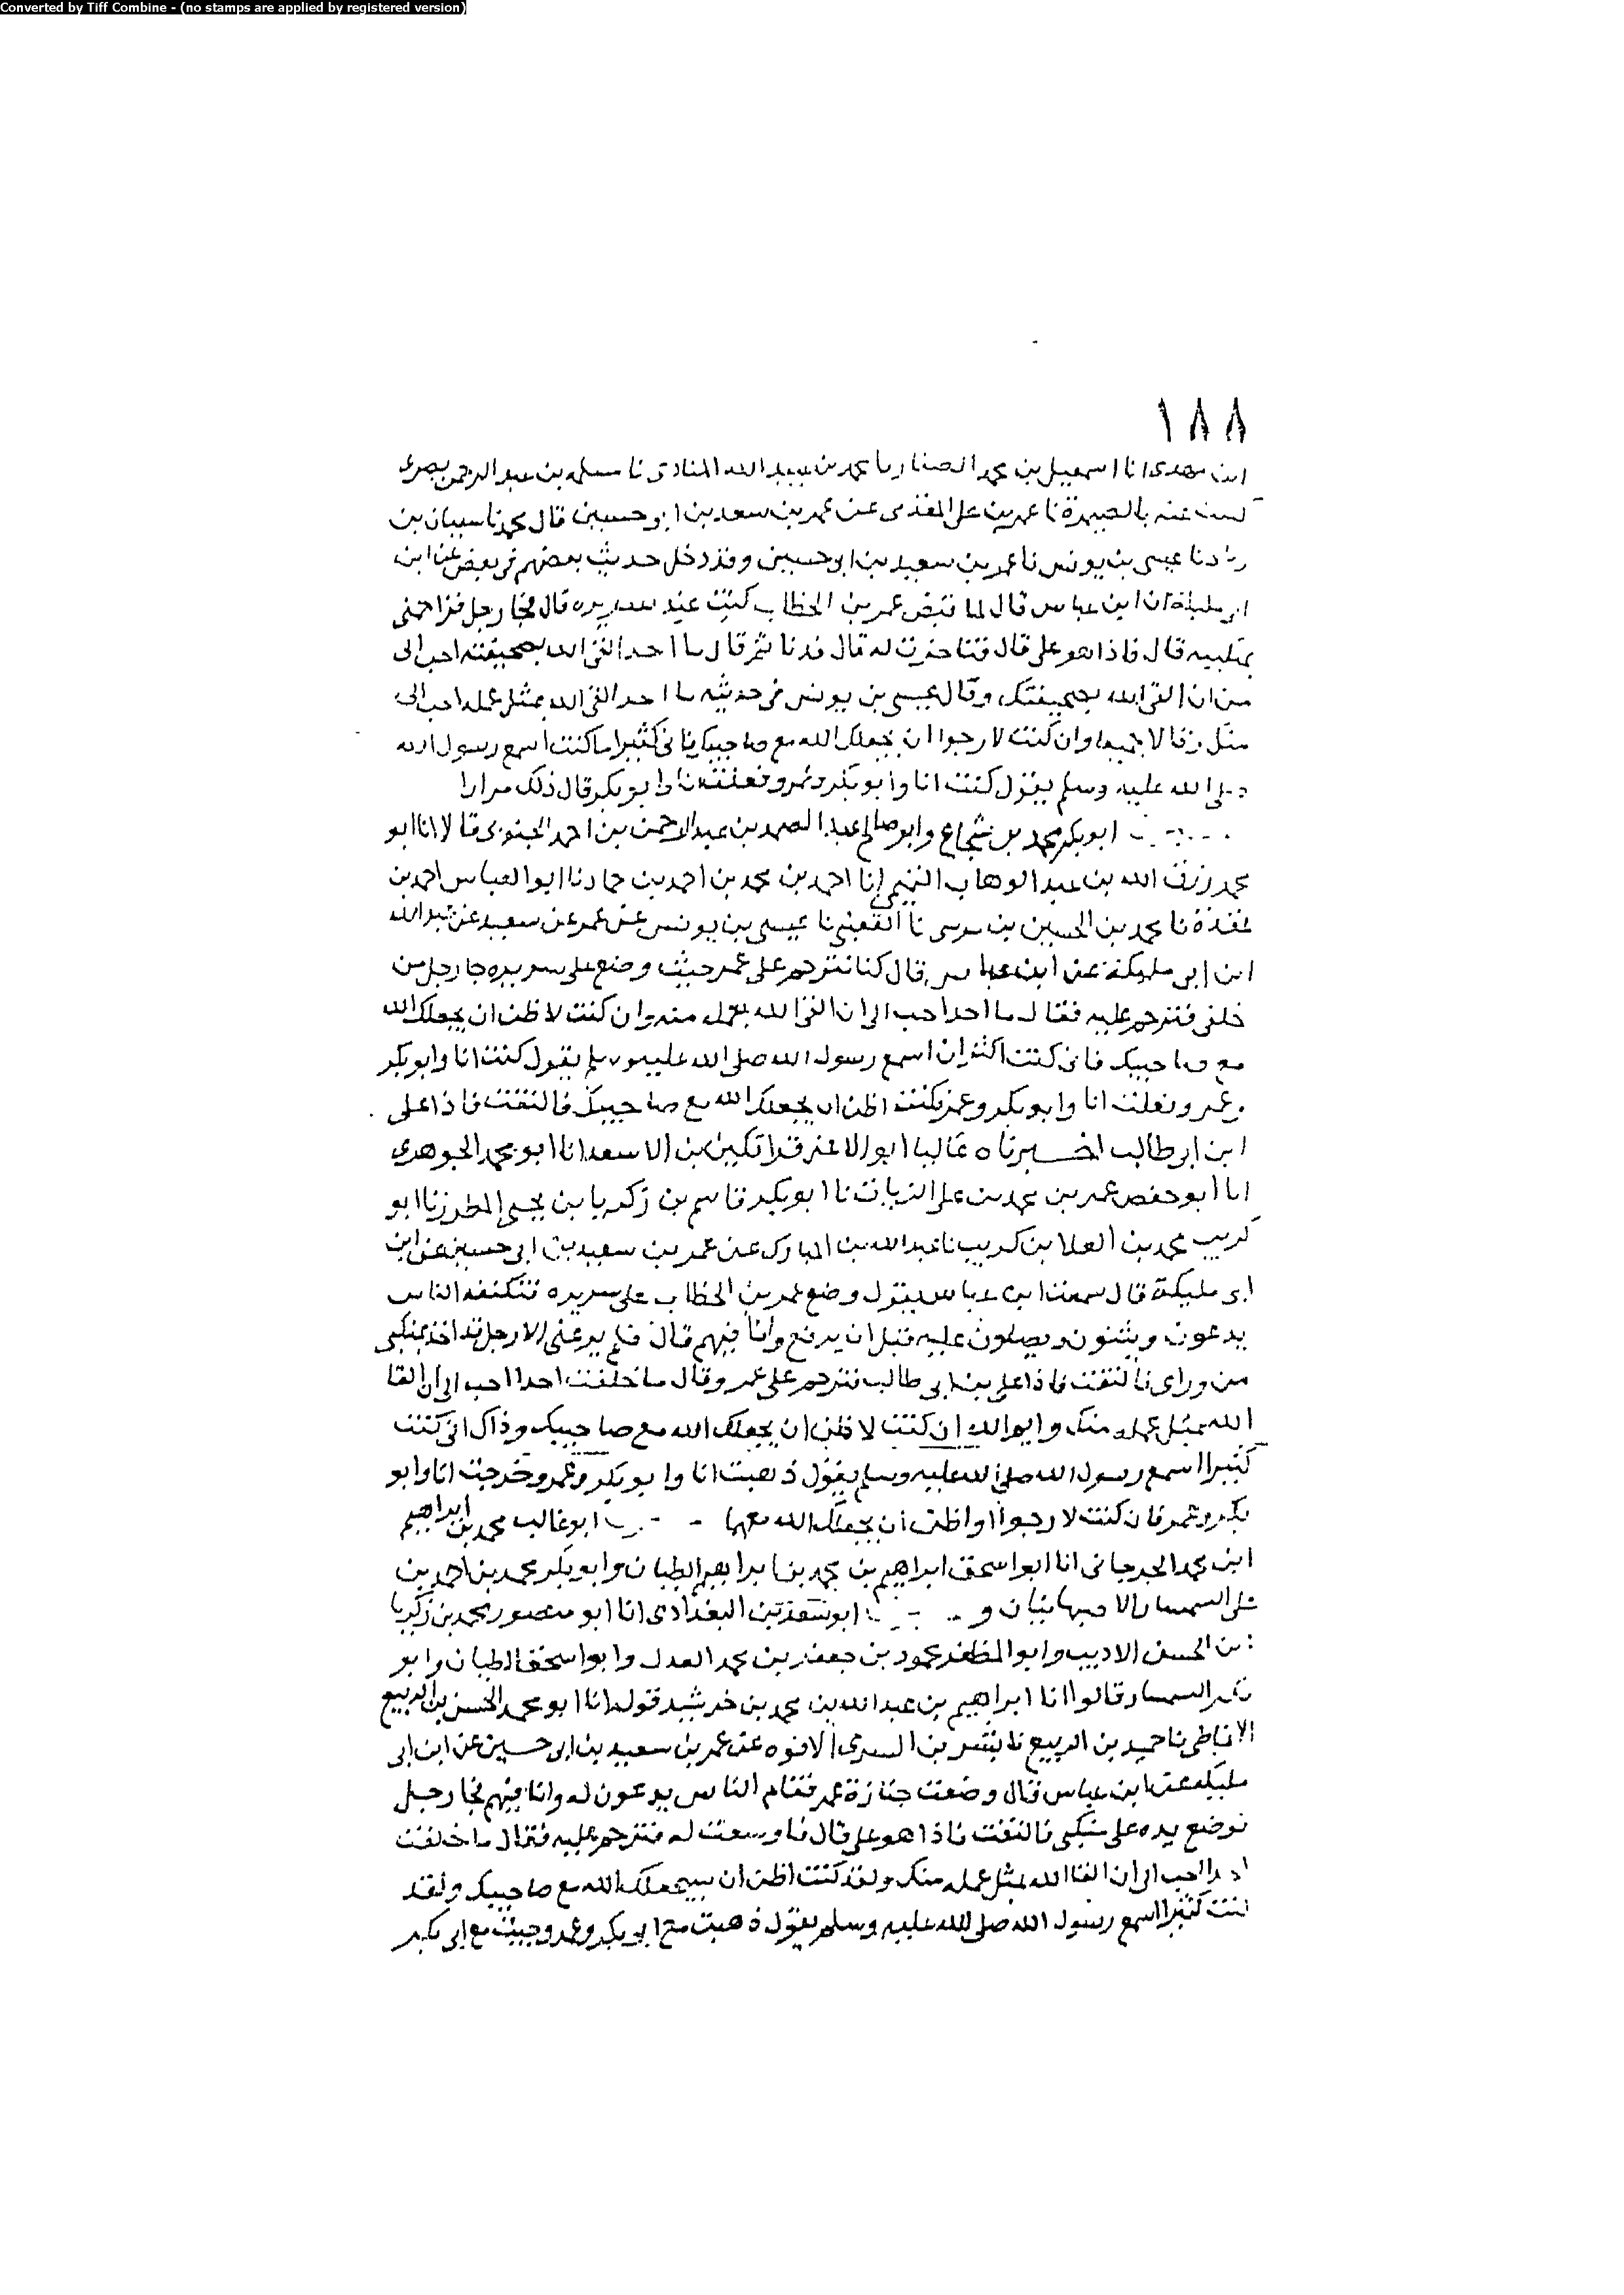 Converted by Tiff Combine - (no stamps are applied by registered version)
١٨٨
ابن مهدى انا اسمعيل بن محمد الصفار نا محمد بن عبيد الله المنادى نا سلمه بن عبد الرحمن بصرى
كتبت عنه بالصيرة نا عمر بن على المقدمى عن عمر بن سعيد بن ابو حسين قال محمد نا سيبان بن
نا عيسى بن يونس نا عمر بن سعيد بن ابو حسين وقد دخل حديث بعضهم فى بعض عن ابن
ابى مليكة ان ابن عباس قال لما قبض عمر بن الخطاب كنت عند سريره قال فجا رجل فزاحمنى
بمنكبيه قال فاذا هو على قال فتاخرت له قال فدنا ثم قال ما احد القى الله بصحيفته احب الى
من ان القى الله بصحيفتك وقال عيسى بن يونس فى حديثه ما احد القى الله بمثل عمله احب الى
وان كنت لارجوا ان يجعلك الله مع صاحبيك فانى كثيرا ما كنت اسمع رسول الله
صلى الله عليه وسلم يقول كنت انا وابو بكر وعمر وفعلت انا وابو بكر قال ذلك مرارا
ابو بكر محمد بن شجاع وابو صالح عبد الصمد بن عبد الرحمن بن احمد الحنوى قالا انا ابو
محمد رزق الله بن عبد الوهاب التميمى انا احمد بن محمد بن احمد بن حماد نا ابو العباس احمد بن
عقدة نا محمد بن الحسين بن موسى نا القعنبى نا عيسى بن يونس عن عمر عن سعيد عن عبد الله
ابن ابى مليكة عن ابن عباس قال كنا نترحم على عمر حيث وضع على سريره جا رجل من
خلفى فترحم عليه فقال ما احد احب الى ان القى الله بعمله منه وان كنت لاظن ان يجعلك الله
مع صاحبيك فانى كنت اكثر ان اسمع رسول الله صلى الله عليه وسلم يقول كنت انا وابو بكر
وعمر وفعلت انا وابو بكر وعمر فكنت اظن ان يجعلك الله مع صاحبيك فالتفت فاذا على
ابن ابى طالب اخبرناه عاليا ابو الاعز قراتكين بن الاسعد انا ابو محمد الجوهرى
انا ابو حفص عمر بن محمد بن على الزيات نا ابو بكر قاسم بن زكريا بن يحيى المطرز نا ابو
كريب محمد بن العلا بن كريب نا عبد الله بن المبارك عن عمر بن سعيد بن ابى حسين عن ابن
ابى مليكة قال سمعت ابن عباس يقول وضع عمر بن الخطاب على سريره فتكنفه الناس
يدعون ويثنون ويصلون عليه قبل ان يرفع وانا فيهم قال فلم يرعنى الا رجل قد اخذ بمنكبى
من وراى فالتفت فاذا على بن ابى طالب فترحم على عمر وقال ما خلفت احدا احب الى ان القا
الله بمثل عمله منك وايم الله ان كنت لاظن ان يجعلك الله مع صاحبيك وذاك انى كنت
كثيرا اسمع رسول الله صلى الله عليه وسلم يقول ذهبت انا وابو بكر وعمر وخرجت انا وابو
بكر وعمر فان كنت لارجوا او اظن ان يجعلك الله معهما ابو غالب محمد بن ابراهيم
ابن محمد الجرجانى انا ابو اسحق ابراهيم بن محمد بن ابراهيم الطيان وابو بكر محمد بن احمد بن
على السمسار الاصبهانيان و ابو سعد بن البغدادى انا ابو منصور محمد بن زكريا
بن الحسن الاديب وابو المظفر محمود بن جعفر بن محمد العدل وابو اسحق الطيان وابو
بكر السمسار قالوا انا ابراهيم بن عبد الله بن محمد بن خرشيد قوله انا ابو محمد الحسن بن الربيع
الانماطى نا حميد بن الربيع نا بشر بن السرى الافوه عن عمر بن سعيد بن ابى حسين عن ابن ابى
مليكه عن ابن عباس قال وضعت جنازة عمر فقام الناس يدعون له وانا فيهم فجا رجل
فوضع يده على منكبى فالتفت فاذا هو على قال فاوسعت له فترحم عليه فقال ما خلفت
احدا احب الى ان القا الله بمثل عمله منك ولقد كنت اظن ان سيجعلك الله مع صاحبيك ولقد
كنت كثيرا اسمع رسول الله صلى الله عليه وسلم يقول ذهبت مع ابو بكر وعمر وجيت مع ابى بكر